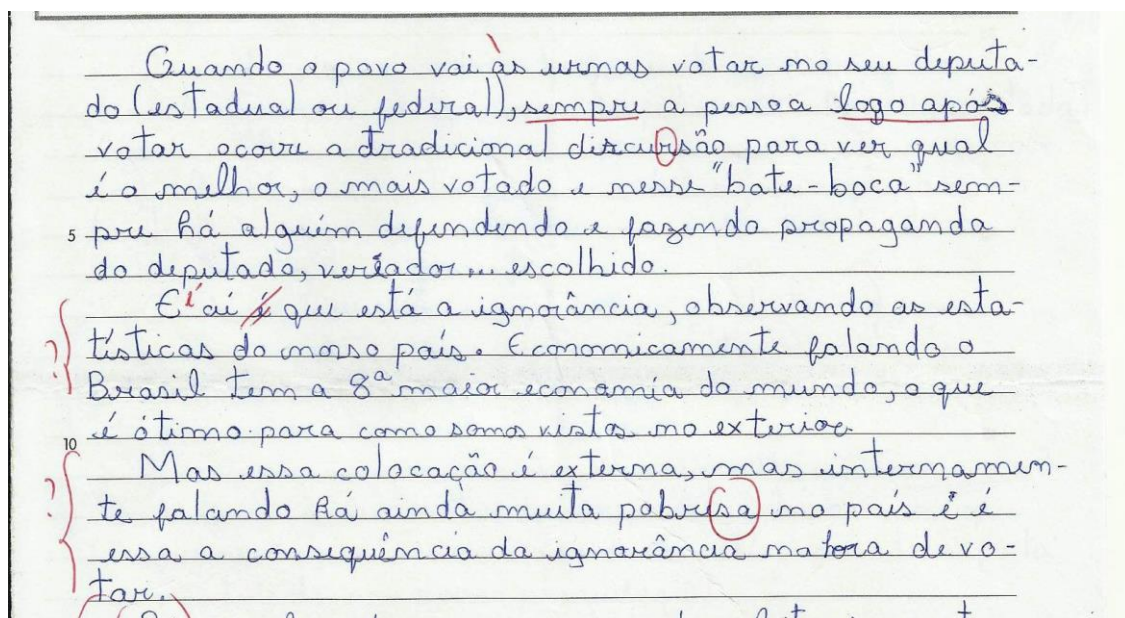 Quando o povo vai às urnas votar no seu deputa-
do (estadual ou federal), sempre a pessoa logo após
votar ocorre a tradicional discursão para ver qual
é o melhor, o mais votado e nesse "bate-boca" sem-
5 pre há alguém defendendo e fazendo propaganda
do deputado, vereador... escolhido.
E aí é que está a ignorância, observando as esta-
? tísticas do nosso país. Economicamente falando o
Brasil tem a 8ª maior economia do mundo, o que
10 é ótimo para como somos vistos no exterior
Mas essa colocação é externa, mas internamen-
? te falando há ainda muita pobresa no país e é
essa a consequência da ignorância na hora de vo-
tar.